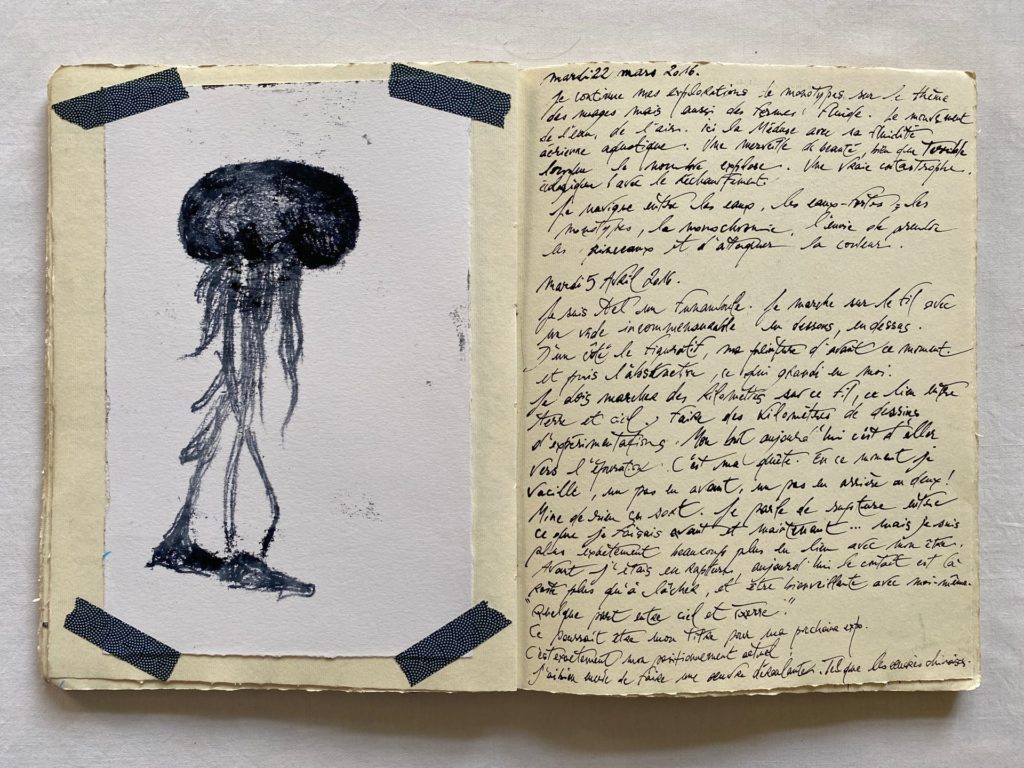 mardi 22 mars 2016.
Je continue mes explorations de monotypes sur le thème
des nuages mais aussi des formes fluide. Le mouvement
de l'eau, de l'air. Ici la Méduse avec sa fluidité
aérienne aquatique. Une merveille de beauté, bien que terrible
lorsque le nombre explose. Une vraie catastrophe,
écologique avec le réchauffement.
Je navigue entre les eaux, les eaux-fortes les
monotypes, la monochromie, l'envie de prendre
les pinceaux et d'attaquer la couleur.
mardi 5 Avril 2016.
Je suis tel un funambule. Je marche sur le fil avec
un vide incommensurable en dessous, en dessus.
D'un côté le figuratif, ma peinture d'avant ce moment
et puis l'abstraction, ce qui grandi en moi.
Je dois marcher des kilomètres sur ce fil, ce lien entre
terre et ciel, faire des kilomètres de dessins
d'expérimentations. Mon but aujourd'hui c'est d'aller
vers l'épuration. C'est ma quête. En ce moment je
vacille, un pas en avant, un pas en arrière ou deux!
Mine de rien ça sort. Je parle de rupture entre
ce que je faisais avant et maintenant... mais je suis
plus exactement beaucoup plus en lien avec mon être.
Avant j'étais en rupture, aujourd'hui le contact est là
reste plus qu'à lâcher, et être bienveillante avec moi-même.
"Quelque part entre ciel et terre"
Ce pourrait être mon titre pour ma prochaine expo.
C'est exactement mon positionnement actuel
J'ai bien envie de faire une œuvre déroulante. Tel que les chinoises.